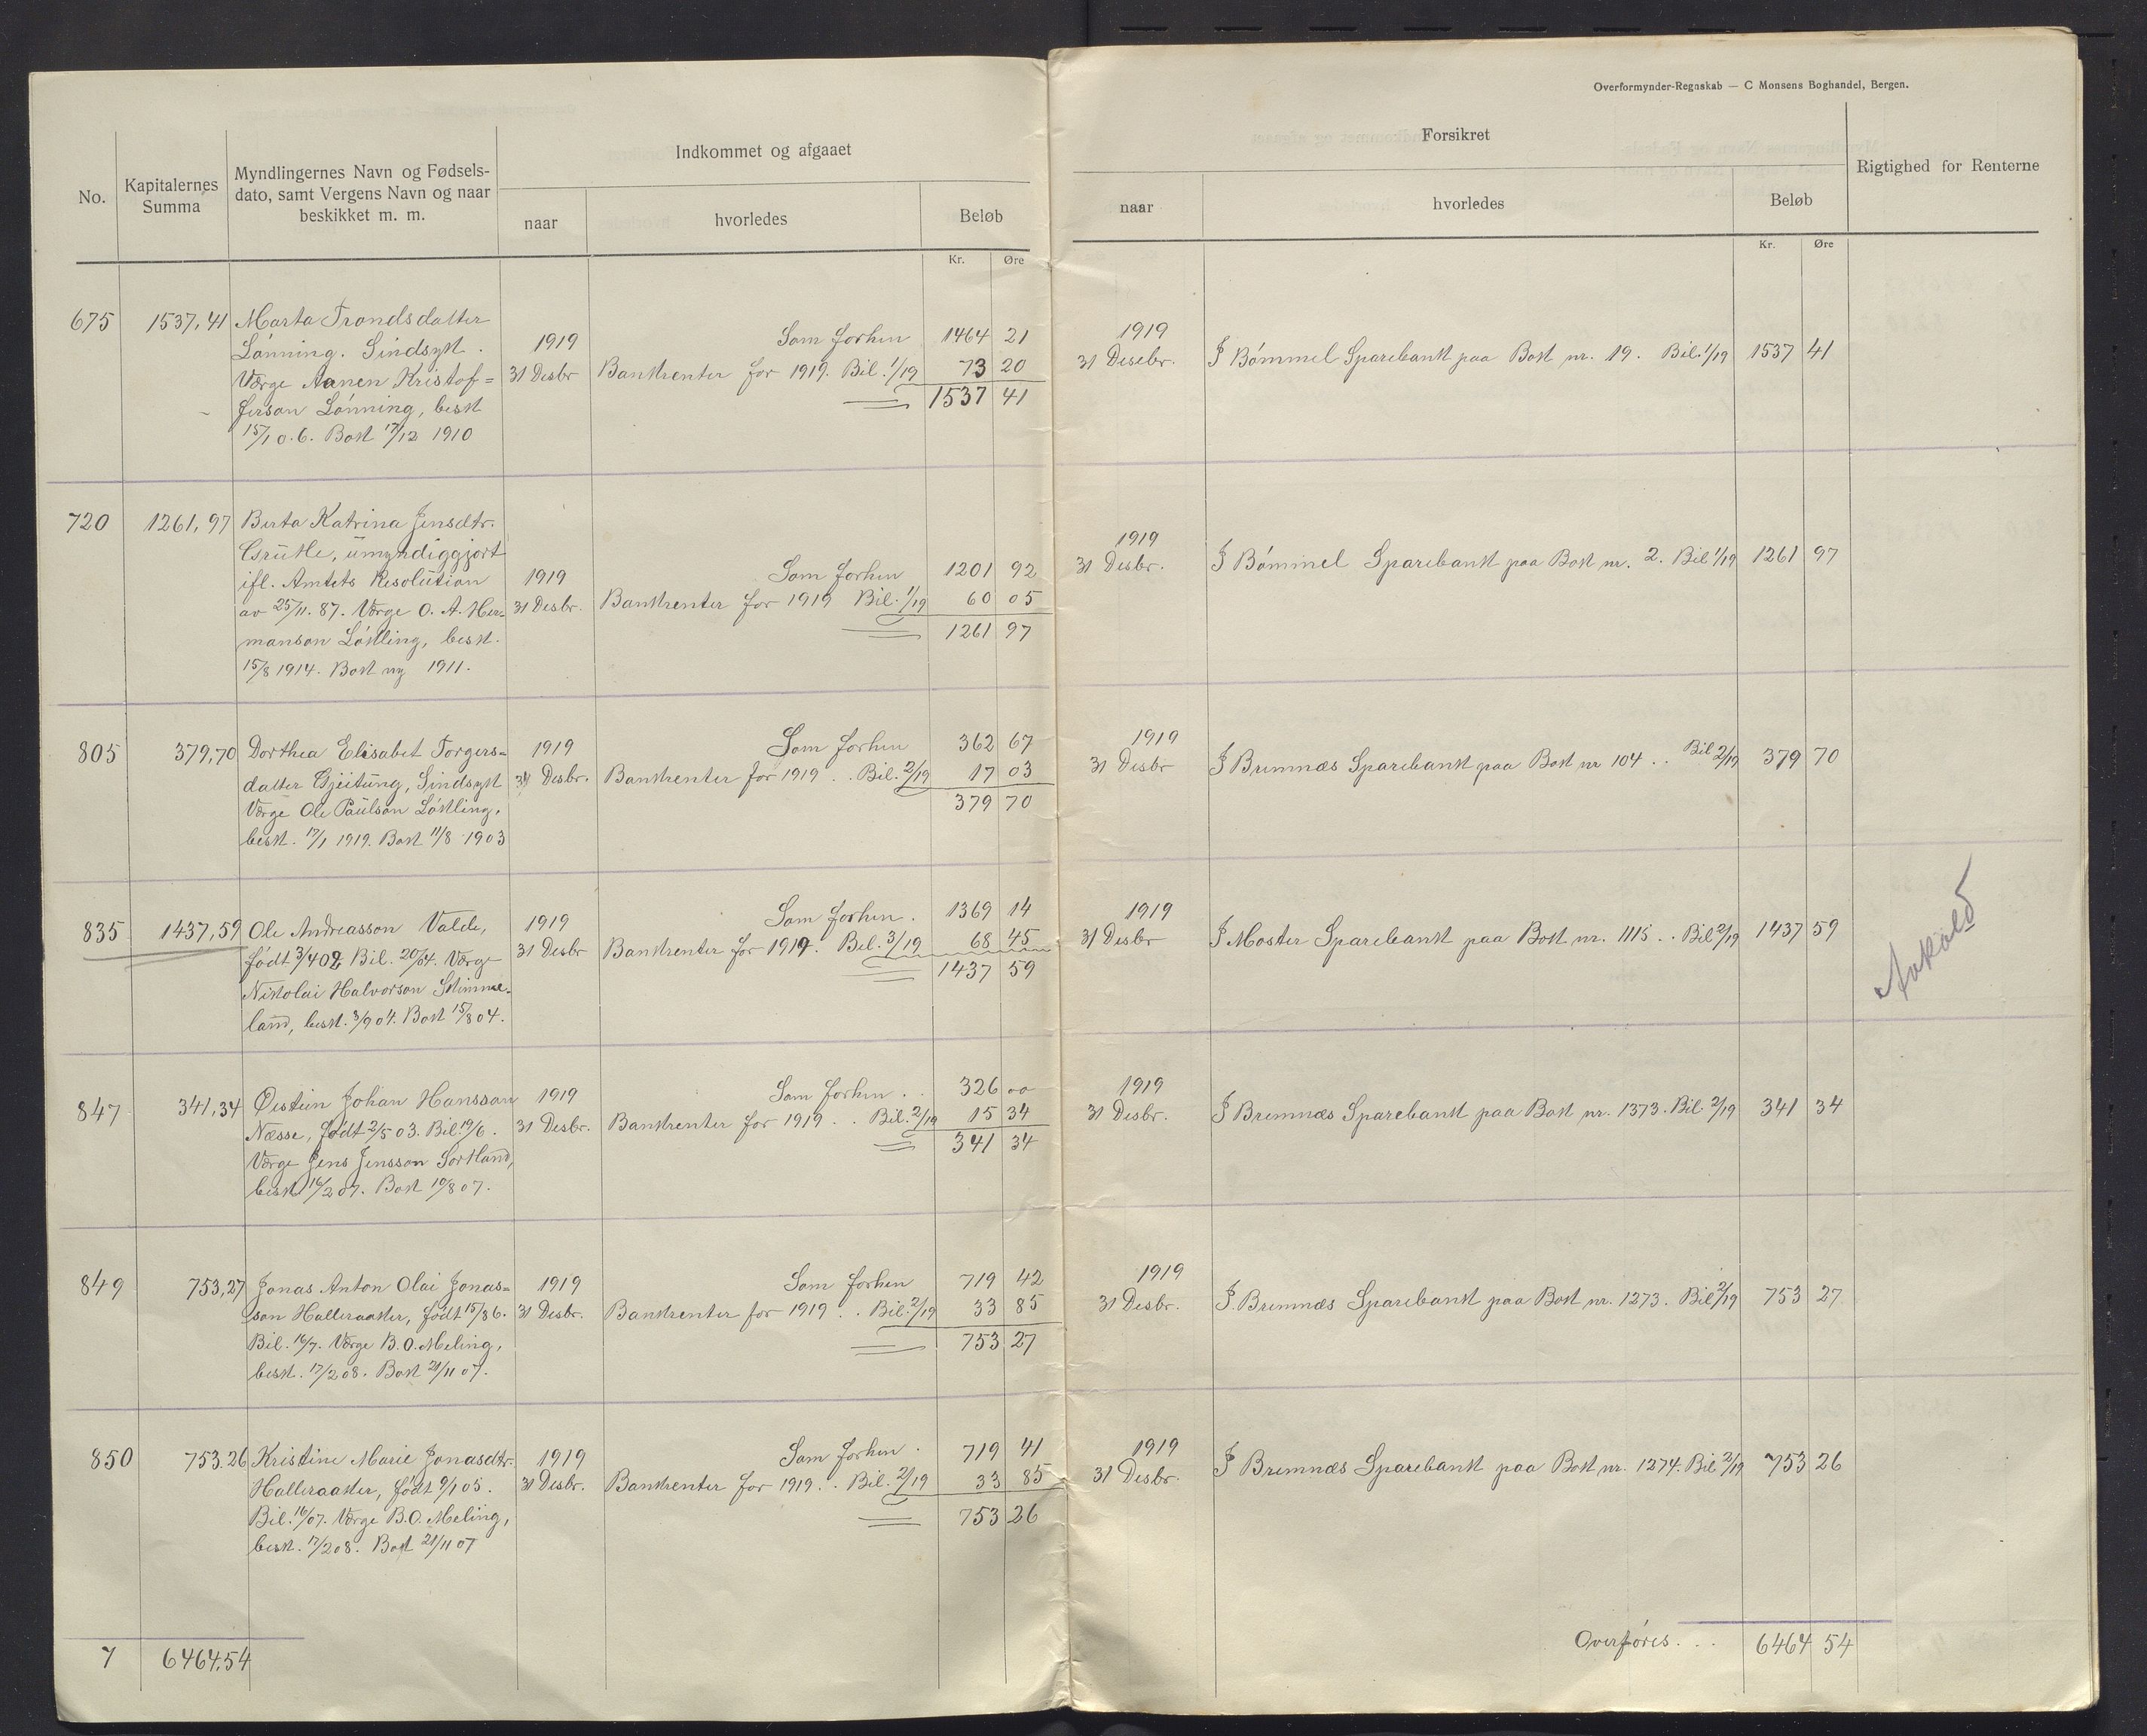 Overformynder-Regnskab — C Monsens Boghandel, Bergen.
No.
Kapitalernes Summa
Myndlingernes Navn og Fødsels-
dato, samt Vergens Navn og naar
beskikket m. m.
Indkommet og afgaaet
naar
hvorledes
Beløb
Kr. Øre
Forsikret
naar
hvorledes
Beløb
Kr. Øre
Rigtighed for Renterne
675 1537,41 Marta Trondsdatter
Lønning. Sindsyk.
Værge Aanen Kristof=
ferson Lønning, besk
15/1 0.6. Bok 17/12 1910
1919 Som forhen 1464 21
31 Desbr Bankrenter for 1919. Bil. 1/19 73 20
1537 41
1919
31 Desebr. I Bømmel Sparebank paa Bok nr. 19. Bil. 1/19 1537 41
720 1261,97 Berta Katrina Jensdtr.
Grutle, umyndiggjort
ifl. Amtets Resolution
av 25/11. 87. Værge O. A. Her-
manson Løkling, besk.
15/8 1914. Bok ny 1911.
1919 Som forhen 1201 92
31 Desbr. Bankrenter for 1919 Bil. 1/19 60 05
1261 97
1919
31 Desbr. I Bømmel Sparebank paa Bok nr. 2. Bil 1/19 1261 97
805 379,70 Dorthea Elisabet Torgers=
datter Gjeitung, Sindsyk
Værge Ole Paulson Løkling,
besk. 17/1 1919. Bok 11/8 1903
1919 Som forhen 362 67
31 Desbr. Bankrenter for 1919 . . Bil. 2/19 17 03
379 70
1919
31 Desbr I Bremnæs Sparebank paa Bok nr 104 . . Bil 2/19 379 70
835 1437,59 Ole Andreasson Valde,
født 3/4 02 Bil. 20/04. Værge
Nikolai Halvorson Skimme-
land, besk. 3/9 04. Bok 15/8 04.
1919 Som forhen. 1369 14
31 Desbr Bankrenter for 1919. Bil. 3/19 68 45
1437 59
1919
31 Desbr I Moster Sparebank paa Bok nr. 1115 . . Bil 3/19 1437 59
847 341,34 Øistein Johan Hansson
Næsse, født 2/5 03. Bil. 19/6.
Værge Jens Jensson Sortland,
besk 16/2 07. Bok 10/8 07.
1919 Som forhen . . 326 00
31 Desbr. Bankrenter for 1919 . . Bil. 2/19 15 34
341 34
1919
31 Desbr. I Bremnæs Sparebank paa Bok nr. 1373. Bil. 2/19 341 34
849 753,27 Jonas Anton Olai Jonas=
son Halleraaker, født 15/8 6.
Bil. 16/7. Værge B. O. Meling,
besk. 17/2 08. Bok 21/11 07.
1919 Som forhen 719 42
31 Desbr. Bankrenter for 1919 . . Bil. 2/19 33 85
753 27
1919
31 Desbr. I. Bremnæs Sparebank paa Bok nr. 1273. Bil 2/19 753 27
850 753.26 Kristine Marie Jonasdtr.
Halleraaker, født 9/1 05.
Bil. 16/07. Værge B.O. Meling,
besk. 17/2 08. Bok 21/11 07
1919 Som forhen . 719 41
31 Desbr. Bankrenter for 1919 . . Bil. 2/19 33 85
753 26
1919
31 Desbr. I Bremnæs Sparebank paa Bok nr. 1274. Bil 2/19 753 26
7 6464,54
Overføres . . . 6464 54